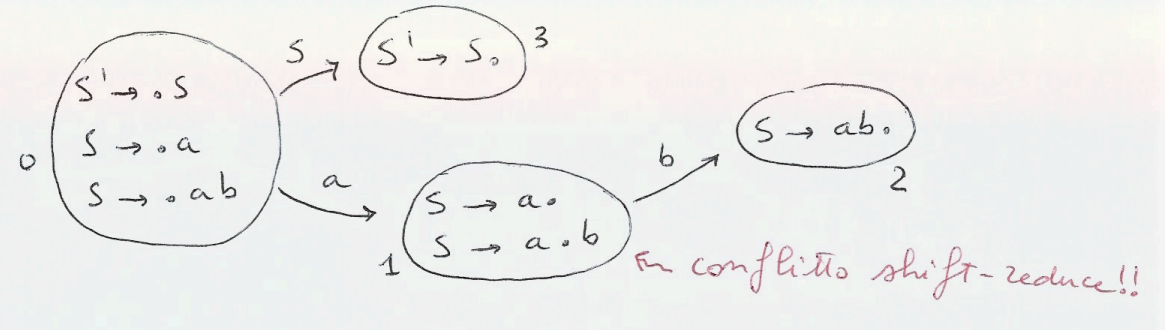 0
S' → .S
S → .a
S → .ab
S
S' → S.
3
a
1
S → a.
S → a.b
b
S → ab.
2
conflitto shift-reduce!!